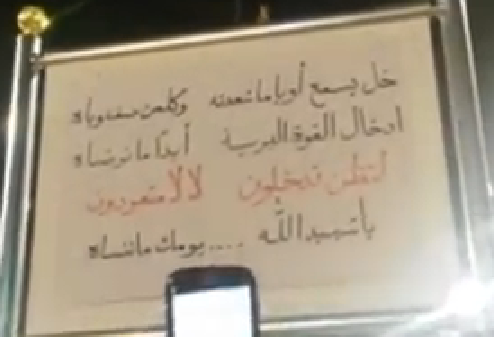 خل يسمع أوباما نعدنه وكلمن سفد وياه
ادخال القوة البرية أبداً ما نرضاه
لتظن تدخلون لا لا متعردون
يا شهيد الله .... يومك ما ننساه